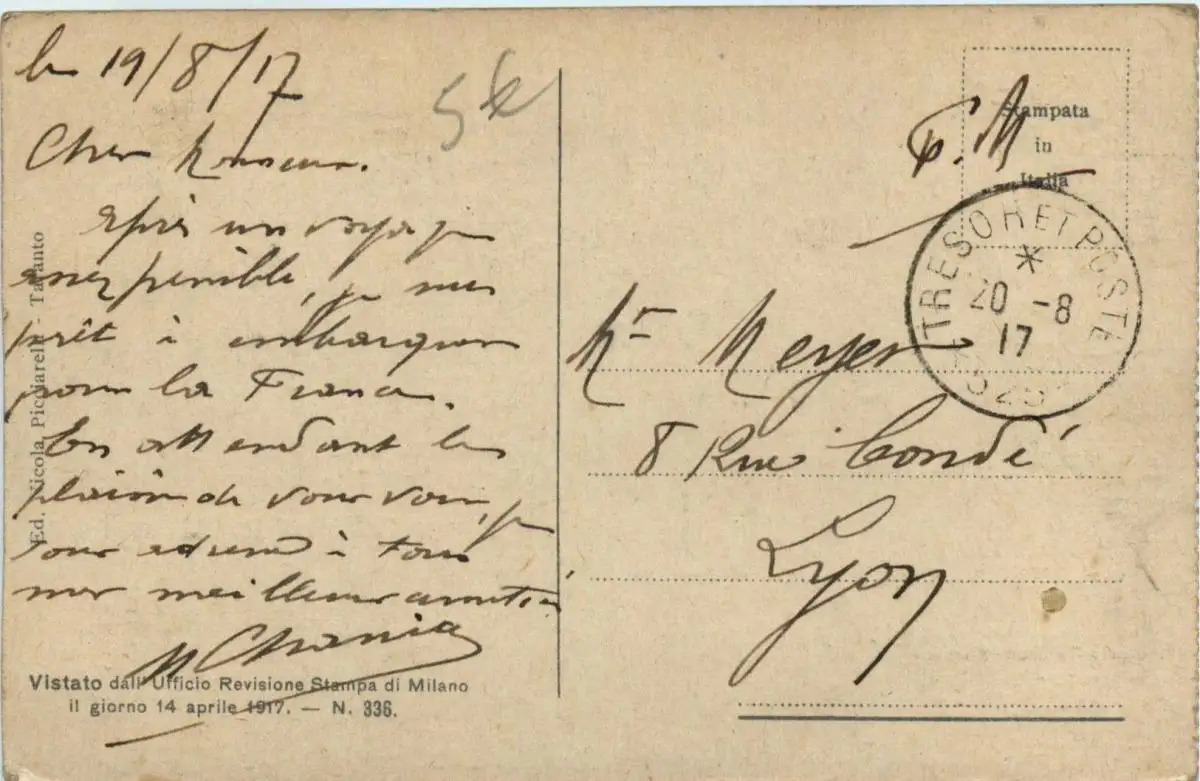 le 19/8/17
5k
Cher Monsieur.
Après un voyage
assez pénible, je suis
prêt à embarquer
pour la France.
En attendant le
plaisir de vous voir, je
vous adresse à tous
mes meilleures amitiés
Ed. Nicola Picciarelli - Taranto
Vistato dall' Ufficio Revisione Stampa di Milano
il giorno 14 aprile 1917. — N. 336.
F.M
Stampata
in
Italia
TRESOR ET POSTES
*
20 -8
17
Mr Meyer
8 Rue Condé
Lyon